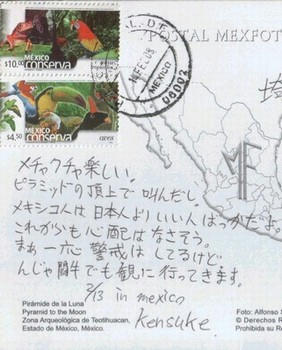 POSTAL MEXFOT
MÉXICO
conserva
$10.50
MÉXICO
conserva
$4.50
aves
MEXICO
06002
埼
MF
メチャクチャ楽しい。
ピラミッドの頂上で叫んだし。
メキシコ人は日本人よりいい人ばっかだよ。
これからも心配はなさそう。
まぁ一応警戒はしてるけど。
んじゃ闘牛でも観に行ってきます。
2/13 in mexico
Kensuke
Pirámide de la Luna
Pyramid to the Moon
Zona Arqueológica de Teotihuacan,
Estado de México, México.
Foto: Alfonso
© Derechos R
Prohibida su R